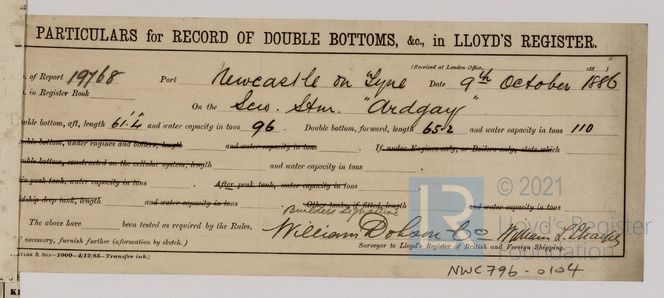 PARTICULARS for RECORD OF DOUBLE BOTTOMS, &c., in LLOYD'S REGISTER.
(Received at London Office, 188 )
. of Report 19768 Port Newcastle on Tyne Date 9th October 1886
. in Register Book On the Scw. Stm. "Ardgay"
uble bottom, aft, length 61'.4" and water capacity in tons 96 . Double bottom, forward, length 65.2 and water capacity in tons 110
uble bottom, under engines and boilers, length and water capacity in tons If under Engines only, or Boilers only, state which
uble bottom, constructed on the cellular system, length and water capacity in tons
e peak tank, water capacity in tons After peak tank, water capacity in tons
dship deep tank, length and water capacity in tons Other tanks, if fitted, length and water capacity in tons
Builders signature
The above have been tested as required by the Rules. William Dobson & Co William
necessary, furnish further information by sketch.) Surveyor to Lloyd's Register of British and Foreign Shipping.
& SUX—1000—4/12/85—Transfer ink.)
NWC796-0104
LR © 2021
Lloyd's Register
Foundation